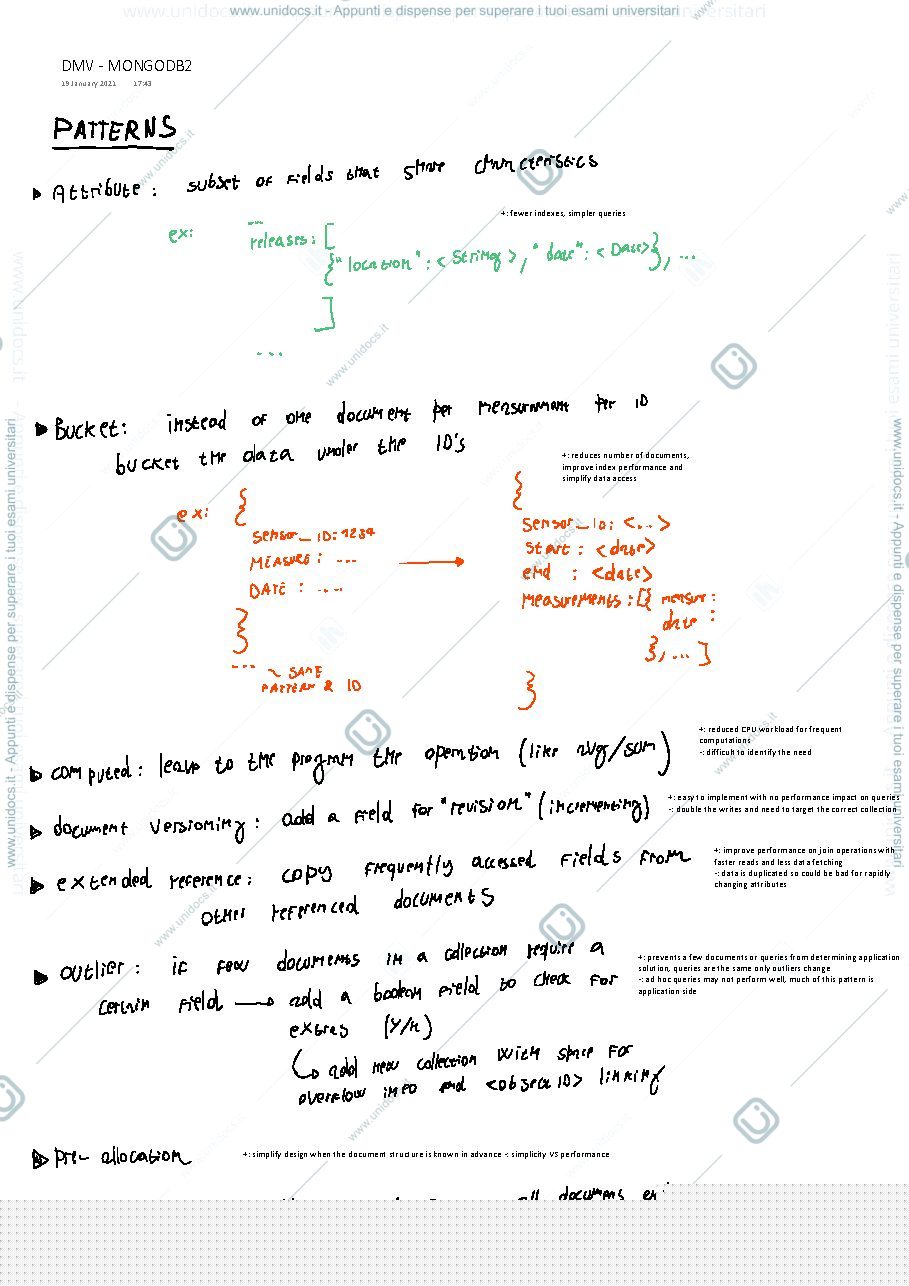 www.unidocs.it - Appunti e dispense per superare i tuoi esami universitari
DMV - MONGODB2
19 January 2022 17:43
PATTERNS
Attribute: subset of fields that share characteristics
+: fewer indexes, simpler queries
ex: ...
releases: [
{"location": <String>, "date": <Date>}, ...
]
...
Bucket: instead of one document per measurement per ID
bucket the data under the ID's
+: reduces number of documents,
improve index performance and
simplify data access
ex: {
sensor_ID: 1234
MEASURE: ...
DATE: ...
}
... SAME
PATTERN & ID
{
sensor_ID: <...>
start: <date>
end: <date>
measurements: [{ measur:
date:
}, ... ]
}
computed: leave to the program the operation (like avg/sum)
+: reduced CPU workload for frequent
computations
-: difficult to identify the need
document versioning: add a field for "revision" (incrementing)
+: easy to implement with no performance impact on queries
-: double the writes and need to target the correct collection
extended reference: copy frequently accessed fields from
other referenced documents
+: improve performance on join operations with
faster reads and less data fetching
-: data is duplicated so could be bad for rapidly
changing attributes
outlier: if few documents in a collection require a
certain field → add a boolean field to check for
extras (Y/N)
add new collection with space for
overflow info and <object ID> linking
+: prevents a few documents or queries from determining application
solution, queries are the same only outliers change
-: ad hoc queries may not perform well, much of this pattern is
application side
Pre-allocation
+: simplify design when the document structure is known in advance -: simplicity VS performance
www.unidocs.it - Appunti e dispense per superare i tuoi esami universitari
www.unidocs.it - Appunti e dispense per superare i tuoi esami universitari
www.unidocs.it
www.unidocs.it
www.unidocs.it
www.unidocs.it
www.unidocs.it